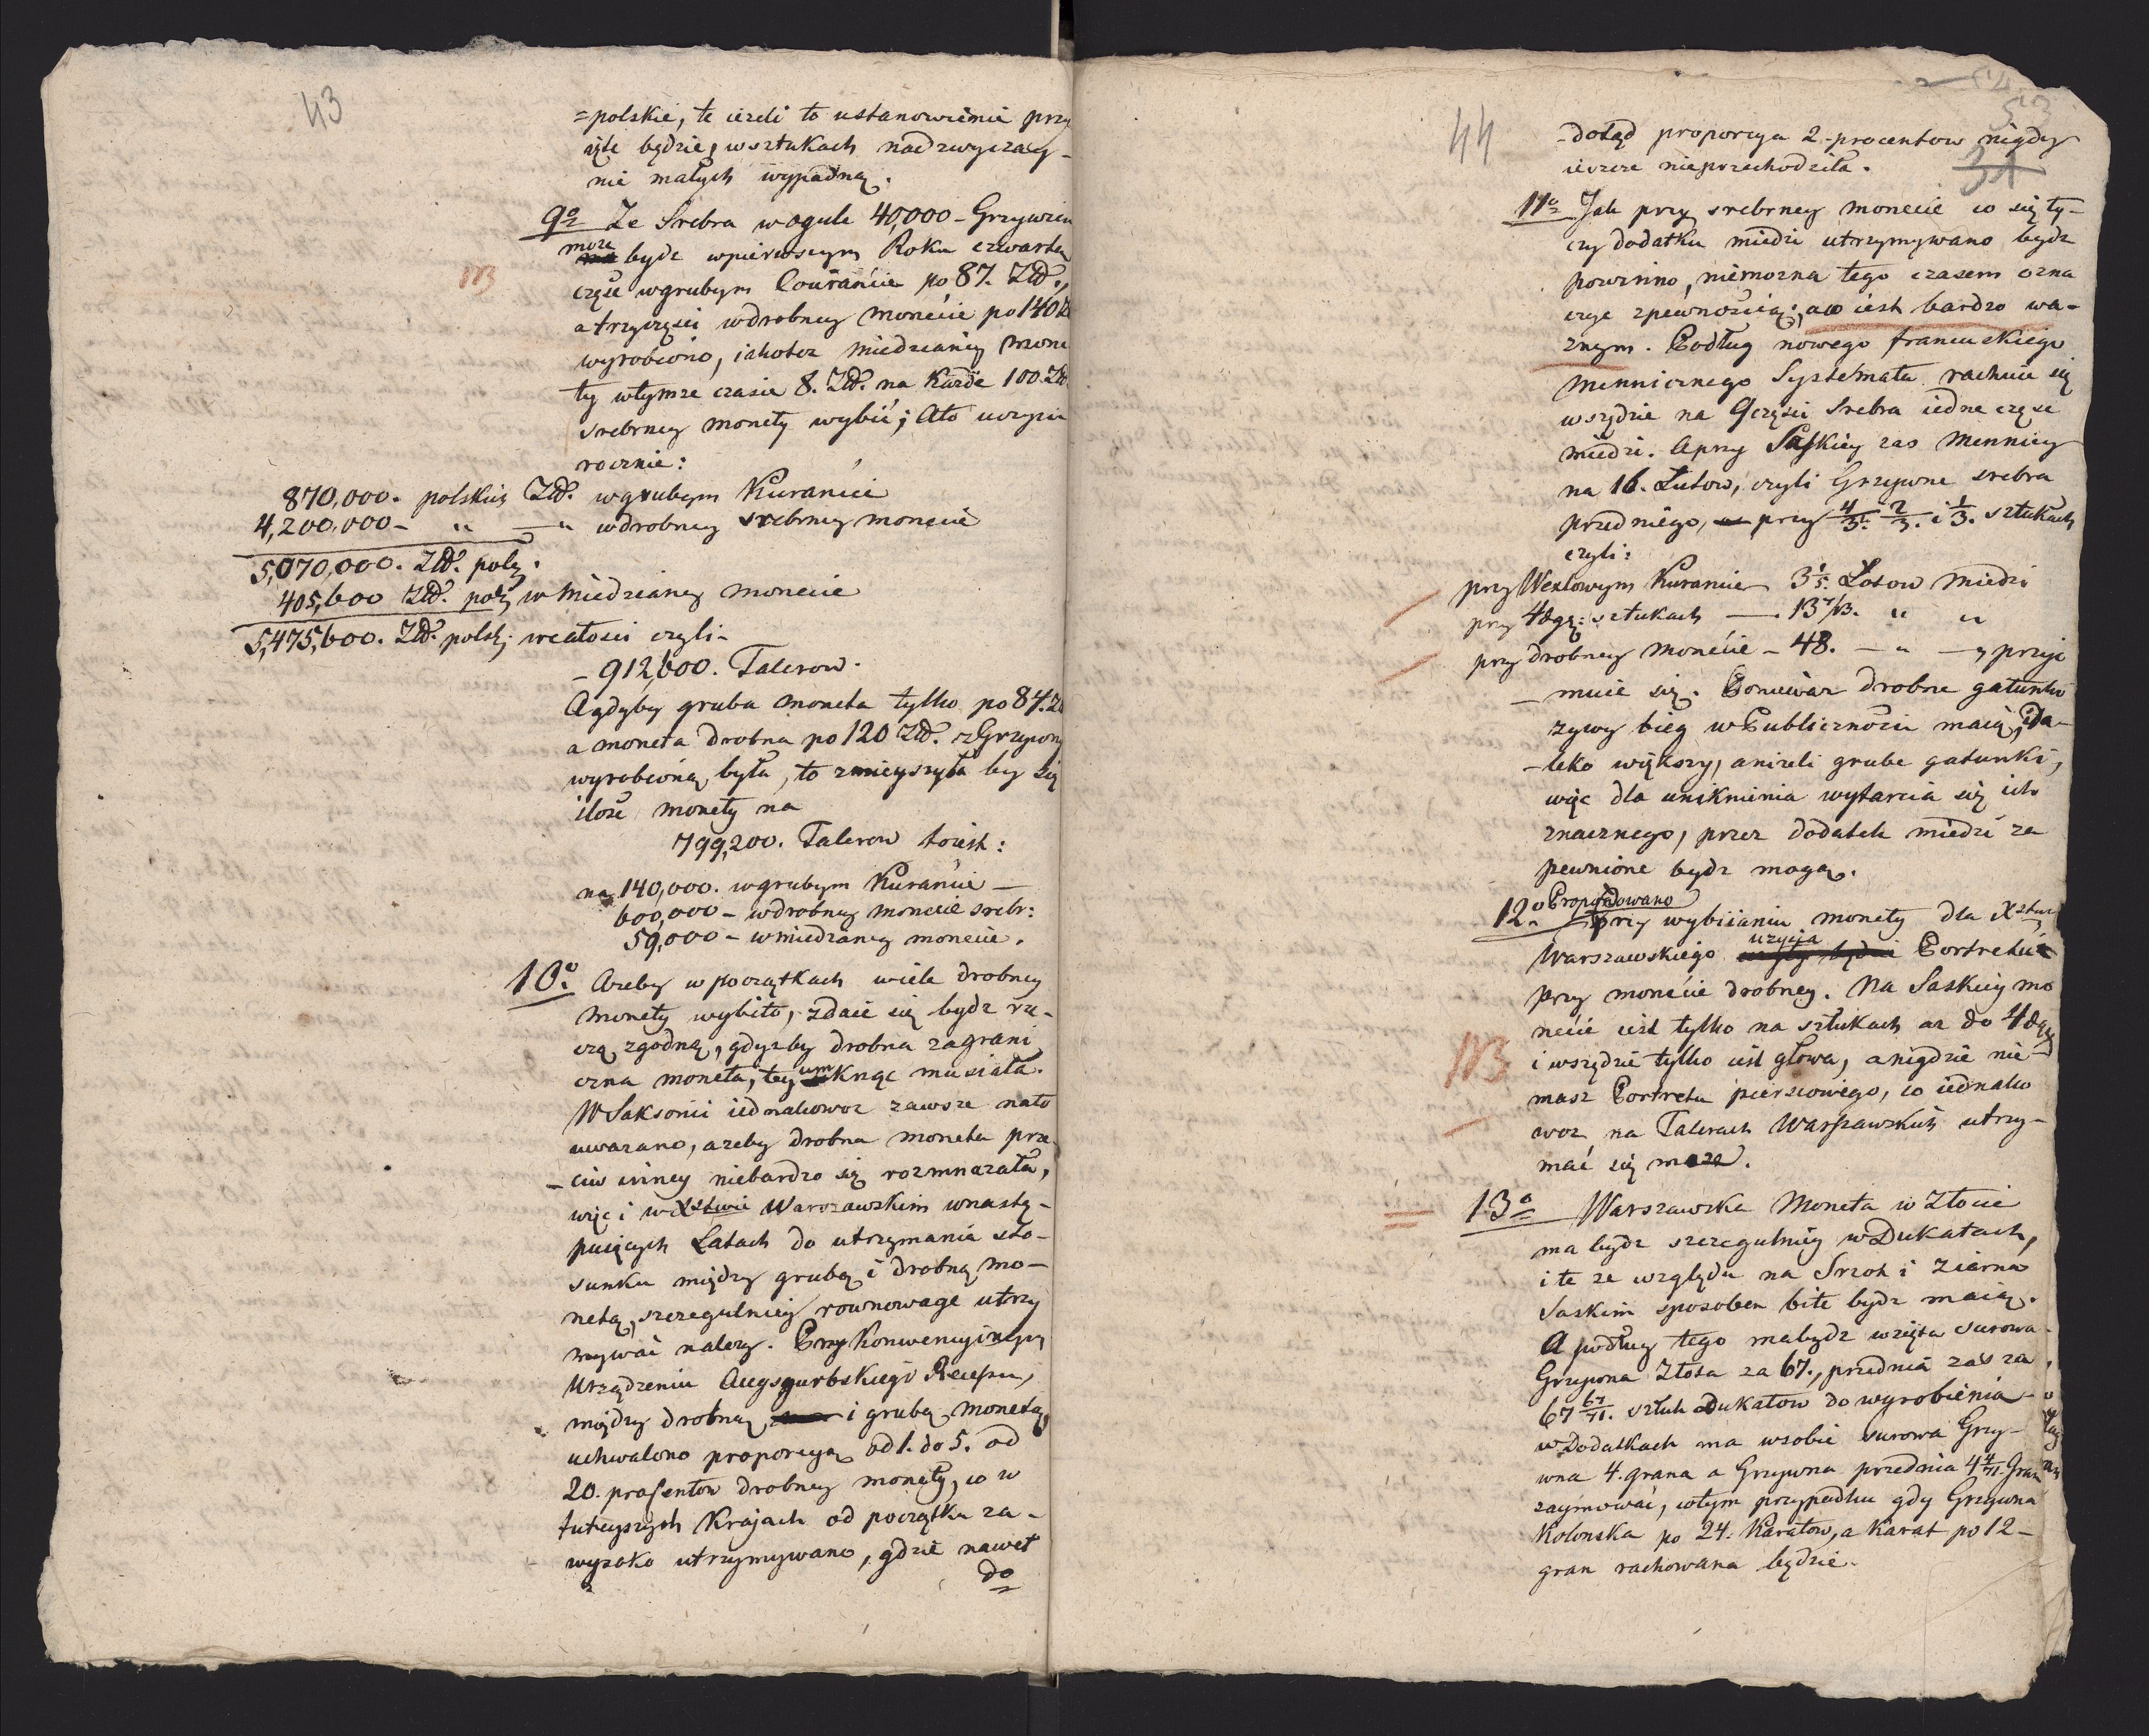 43
=polskie, te ieżeli to ustanowienie przy
ięte będzie, wsztukach nadzwyczay-
nie małych wypadną.
9o Ze Srebra wogule 40,000 - Grzywien
może
bydz wpierwszym Roku czwarta
NB
częsć wgrubym Couranćie po 87. Złł.,
a trzyczęsci wdrobney monećie po 140 Zł
wyrobiono, iakotez miedzianey mone
ty wtymze czasie 8. Złł. na Każde 100. Zł.
srebrney monety wybić; Ato uczyni
rocznie:
870,000. polskich Złł. wgrubym Kuranćie
4,200,000 - " — " wdrobney srebrney monecie
5,070,000. Złł. polş.
405,600 Złł. polş w Miedzianey monecie
5,475,600. Złł. polsk; wcałosci czyli-
- 912,600. Talerow.
Agdyby gruba moneta tylko po 84. Zł
a moneta drobna po 120 Złł. z Grzywny
wyrobioną była, to zmieyszyła by się
ilosc monety na
799,200. Talerow toiest:
na 140,000. wgrubym Kuranćie —
600,000 - wdrobney monecie srebr:
59,000 - wmiedzianey monecie.
10.o Azeby w początkach wiele drobney
monety wybito, zdaie się bydz rze-
czą zgodną, gdyzby drobna zagrani
czna moneta, tey umknąc musiała.
W Saksonii iednakowoz zawsze nato
uwazano, azeby drobna moneta prze
- ciw inney niebardzo się rozmnażała,
więc i w Xstwie Warszawskim wnastę-
puiących Latach do utrzymania sto-
sunku między grubą i drobną mo-
netą, szczegulniey rownowage utrzy
mywać nalezy. Przy Konwencyinym
Urządzeniu Augsgurbskiego Recessu,
między drobną i grubą monetą,
uchwalono proporcyą od 1. do 5. od
20. prosentow drobney monety, co w
tuteyszych Krajach od początku za-
wysoko utrzymywano, gdzie nawet
do
44
31
-dotąd proporcya 2-procentow nigdy
ieszcze nieprzechodziła.
11o Jak przy srebrney monecie co się ty-
czy dodatku miedzi utrzymywano bydz
powinno, niemozna tego czasem ozna
czyc zpewnoscią; a co iest bardzo wa-
znym. Podług nowego francuskiego
Mennicznego Systemata rachuie się
wszędzie na 9częsci Srebra iedne częsc
miedzi. Aprzy Saskiey zas Mennicy
na 16. Lutow, czyli Grzywne srebra
przedniego, przy 4/3. 2/3. i 1/3. sztukach
czyli:
przy Wexlowym Kurancie 3 1/5 Łotow miedzi
przy 4dgr: sztukach — 13 7/13. " "
przy drobney monećie - 48. — " — " przyi
— muie się. Poniewaz drobne gatunki
zywy bieg w Publicznosci maią, da-
- leko większy, anizeli grube gatunki,
więc dla uniknienia wytarcia się ich
znacznego, przez dodatek miedzi za
pewnione bydz mogą.
12.o Proponowano
przy wybiianiu monety dla Xztwa
uzycia
Warszawskiego Portretu
przy monećie drobney. Na Saskiey mo
NB
necie iest tylko na sztukach az do 4dgr
i wszędzie tylko iest głowa, anigdzie nie-
masz Portretu piersiowego, co iednako
woz na Talerach Warszawskich utrzy-
mać się moze.
13o Warszawska Moneta w Złocie
ma bydz szczegulniey w Dukatach,
i te ze względu na Srzot i Ziarno
Saskim sposobem bite bydz maią.
A podług tego mabydz wzięta surowa
Grzywna Złota za 67., przednia zas za
67 67/71. sztuk Dukatow do wyrobienia
w Dodatkach ma wsobie surowa Grzy-
wna 4. grana a Grzywna przednia 4 4/71. Gran
zaymować, wtym przypadku gdy Grzywna
Kolonska po 24. Karatow, a Karat po 12-
gran rachowana będzie.